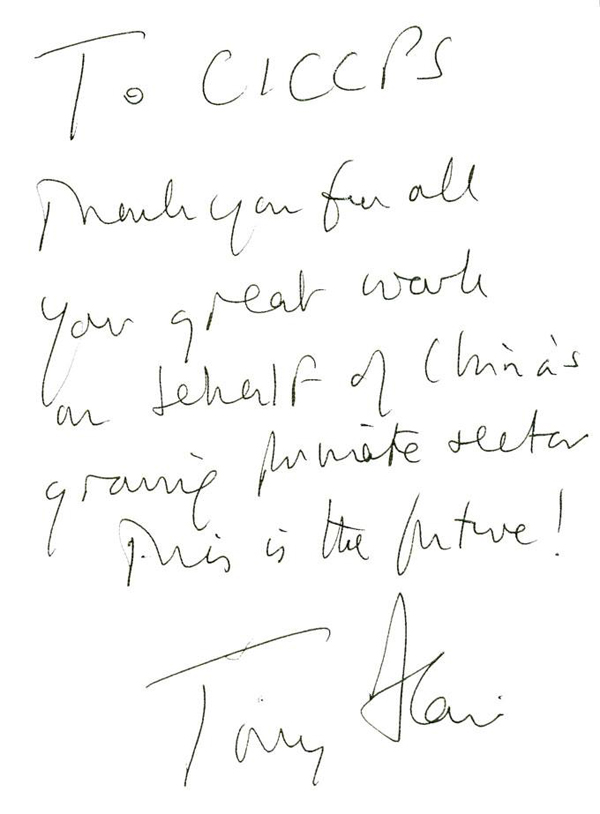 To CICCPS
Thank you for all
your great work
on behalf of China's
growing private sector
This is the future!
Tony Blair